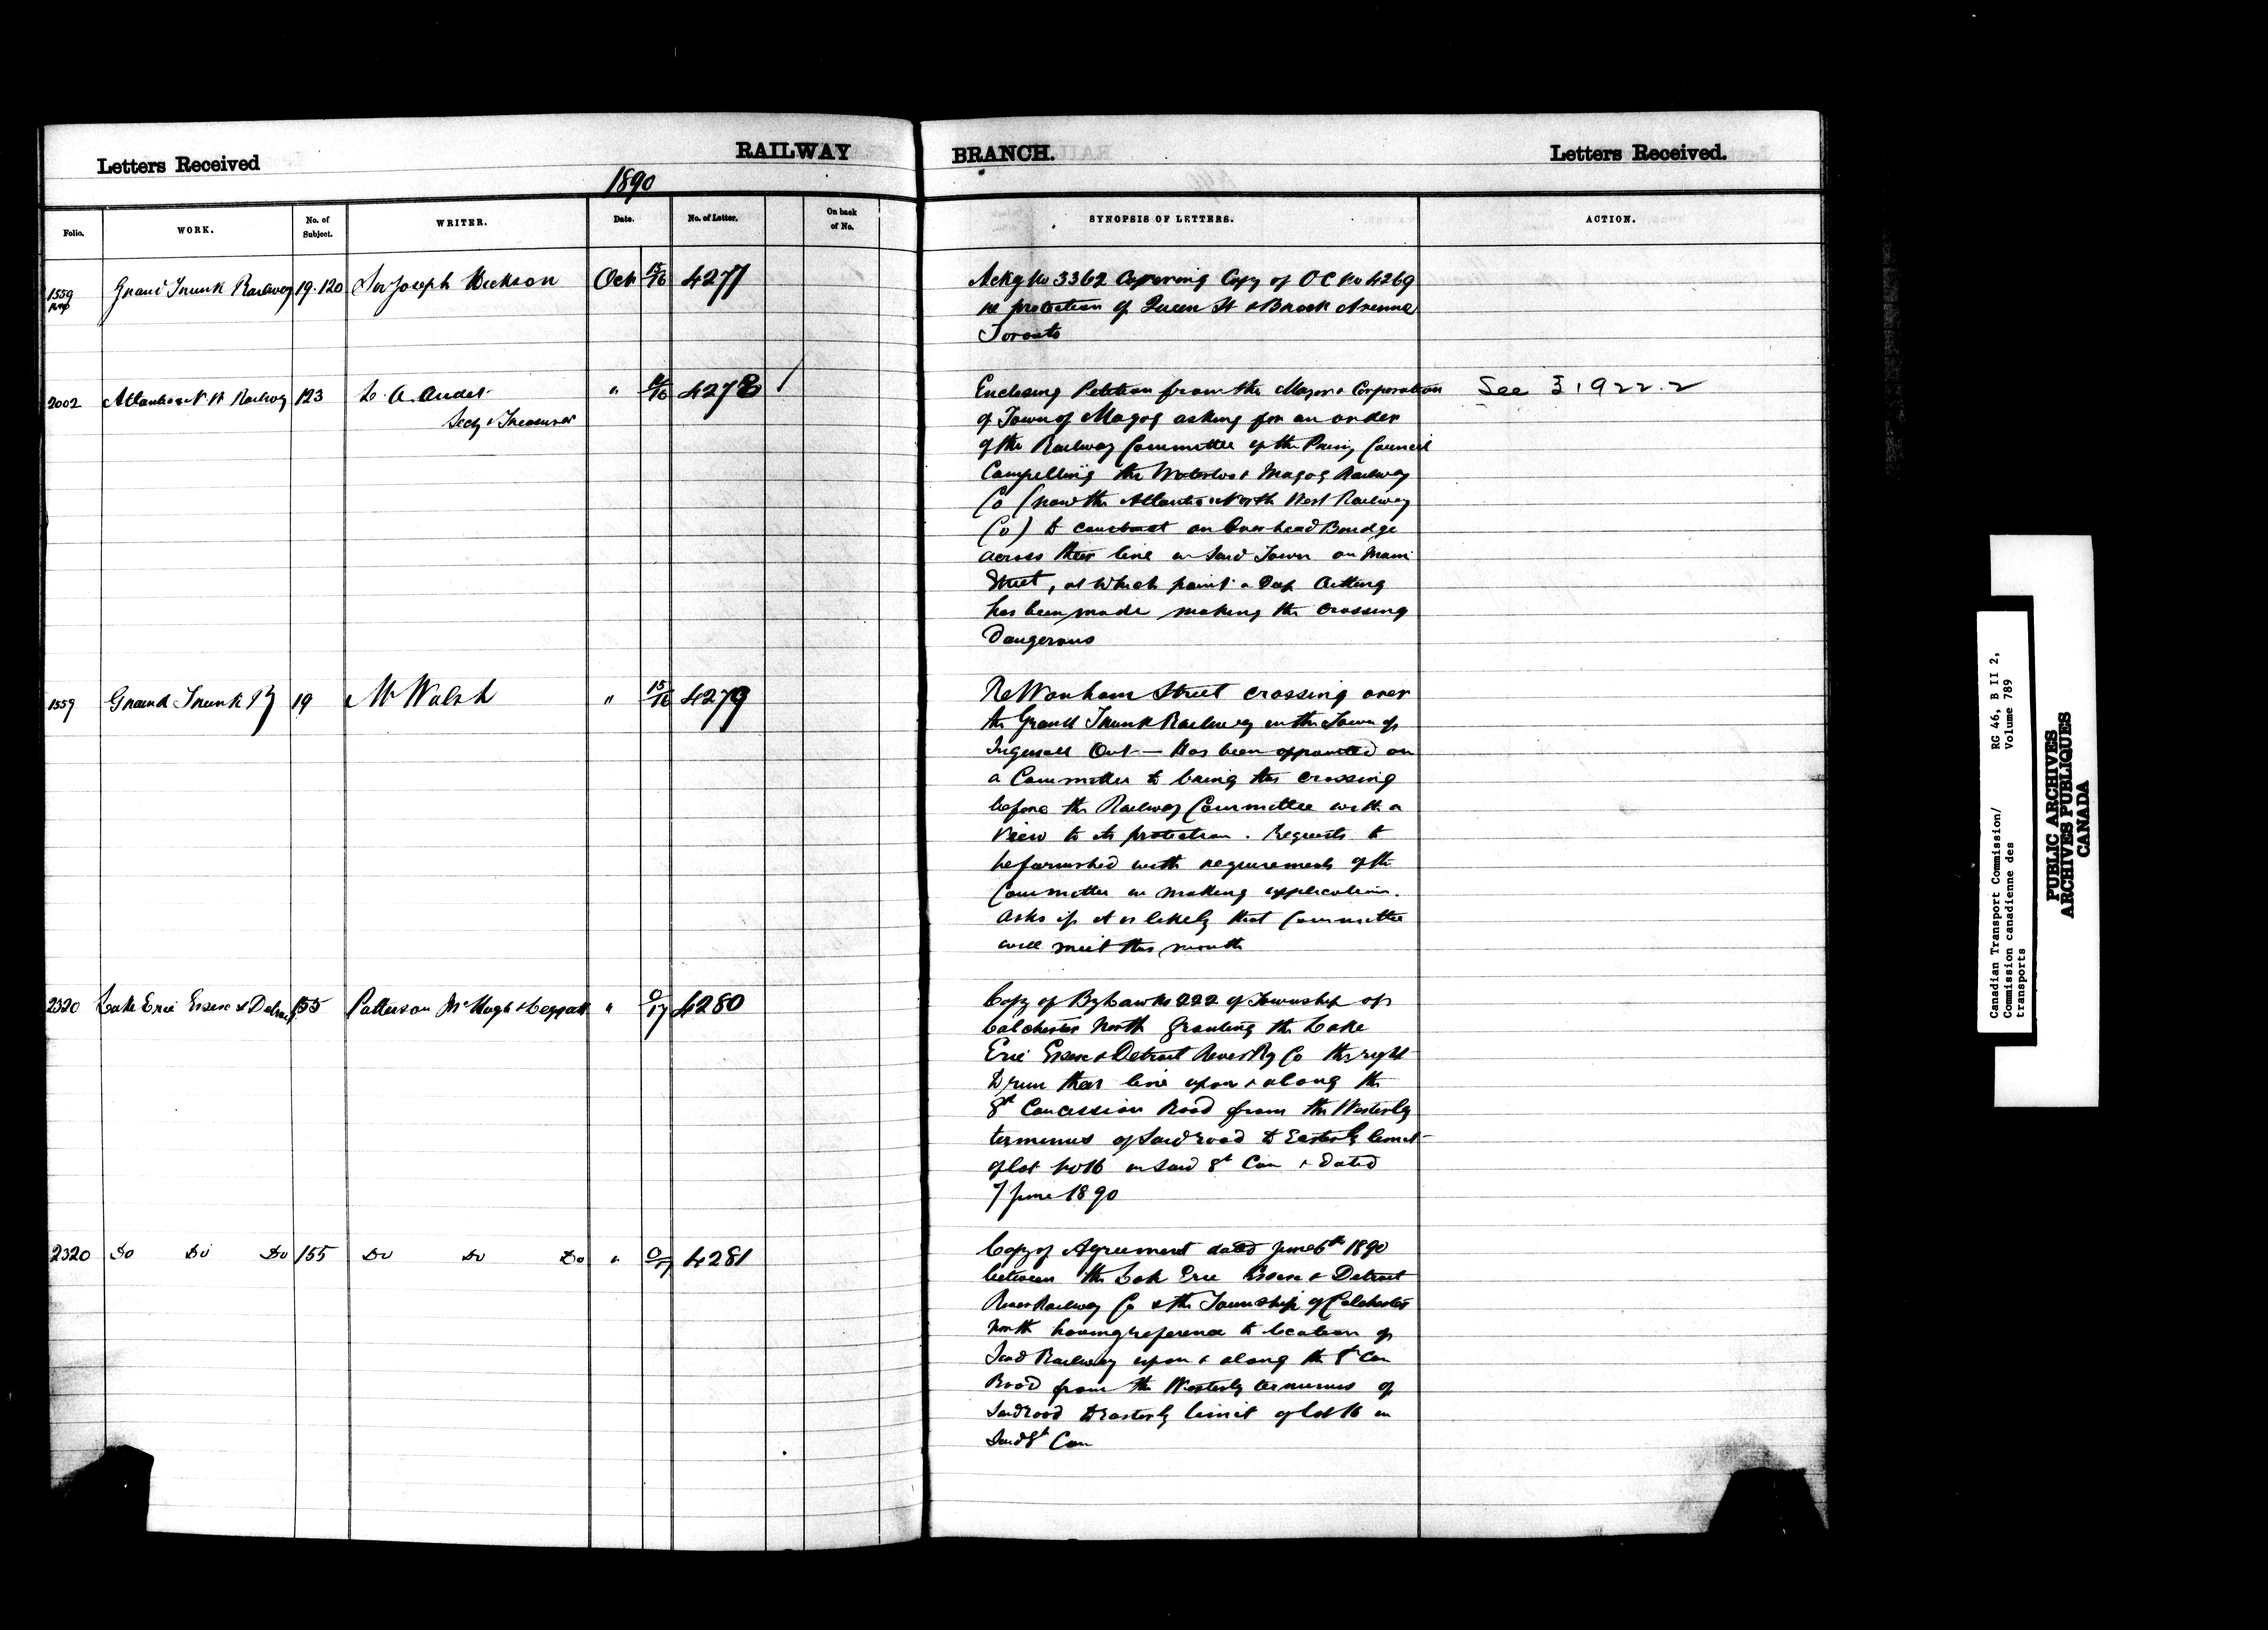 Letters Received
RAILWAY
BRANCH.
Letters Received.
1890
Folio.
WORK.
No. of Subject.
WRITER.
Date.
No. of Letter.
On back of No.
SYNOPSIS OF LETTERS.
ACTION.
1559
Grand Trunk Railway 19.120 Sir Joseph Hickson Oct 15/16 4277
Ackg No 3362 Covering Copy of OC No 4269
re protection of Queen St & Brock Avenue
Toronto
2002 Atlantic & N W Railway 123 L. A. Audet " /16 4278 /
Secy & Treasurer
Enclosing Petition from the Mayor & Corporation
See 31922.2
of Town of Magog asking for an order
of the Railway Committee of the Privy Council
Compelling the Waterloo & Magog Railway
Co (now the Atlantic & North West Railway
Co) to construct an Overhead Bridge
across their line in said Town on Main
Street, at which point a Deep Cutting
has been made making the crossing
Dangerous
1559 Grand Trunk Ry 19 M Walsh " 15/16 4279
Re Wonham Street crossing over
the Grand Trunk Railway in the Town of
Ingersoll Ont — Has been appointed on
a Committee to bring this crossing
before the Railway Committee with a
view to its protection. Requests to
be furnished with requirements of the
Committee in making application.
Asks if it is likely that Committee
will meet this month
2320 Lake Erie Essex & Detroit 155 Patterson McHugh & Leggatt " 0/17 4280
Copy of By Law No 222 of Township of
Colchester North granting the Lake
Erie Essex & Detroit River Ry Co the right
to run their line upon & along the
8th Concession Road from the Westerly
terminus of said road to Easterly limit
of lot No 16 in said 8th Con & dated
7 June 1890
2320 Do Do Do 155 Do Do Do " 0/17 4281
Copy of Agreement dated June 6th 1890
between the Lake Erie Essex & Detroit
River Railway Co & the Township of Colchester
North having reference to location of
said Railway upon & along the 8th Con
Road from the Westerly terminus of
said road to Easterly limit of lot 16 in
said 8th Con
Canadian Transport Commission/
Commission canadienne des
transports
RG 46, B II 2,
Volume 789
PUBLIC ARCHIVES
ARCHIVES PUBLIQUES
CANADA